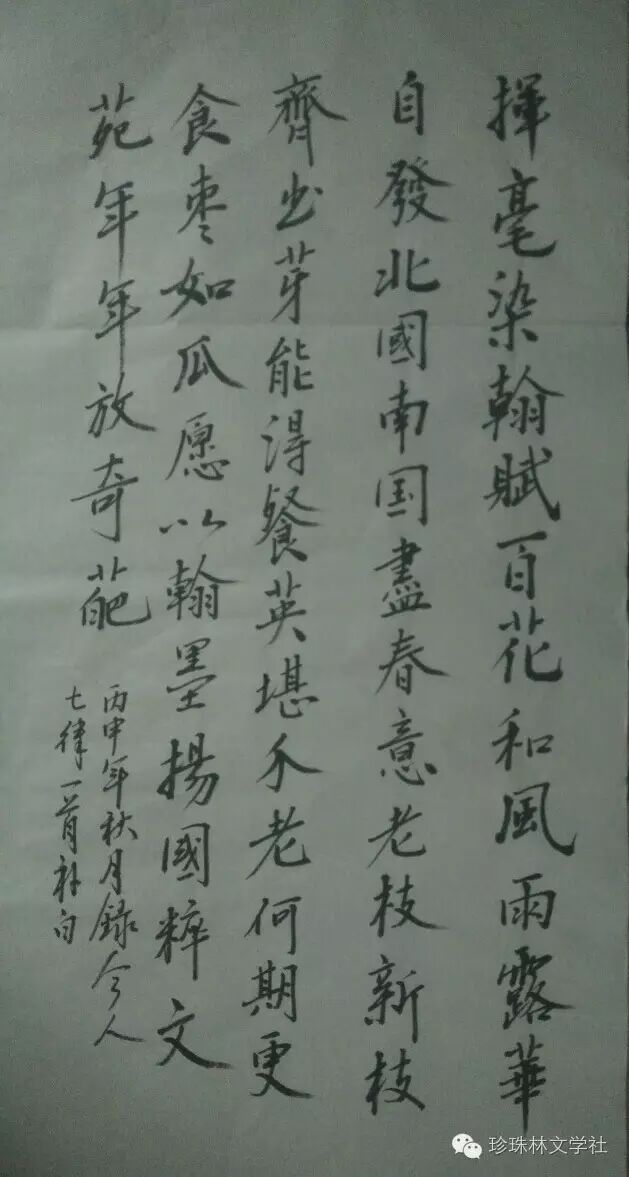 揮毫染翰賦百花和風雨露華
自發北國南国盡春意老枝新枝
齊出芽能得餐英堪不老何期更
食枣如瓜愿以翰墨揚國粹文
苑年年放奇葩
丙申年秋月録今人
七律一首补白
珍珠林文学社